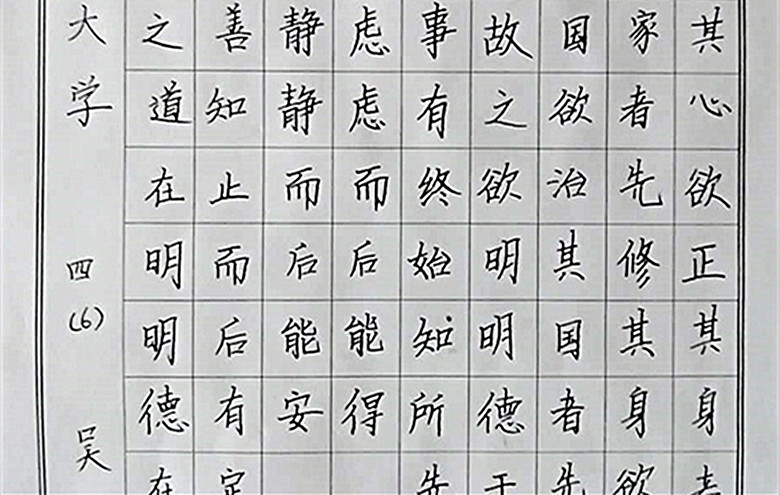 大学 四(6) 吴
之道在明明德在
善知止而后有定
静静而后能安
虑虑而后能得
事有终始知所先
故之欲明明德于
国欲治其国者先
家者先修其身欲
其心欲正其身者